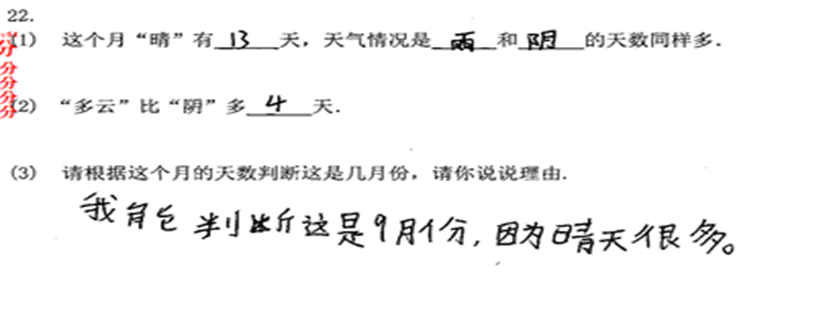 22.
(1) 这个月“晴”有13天，天气情况是雨和阴的天数同样多.
(2) “多云”比“阴”多4天.
(3) 请根据这个月的天数判断这是几月份，请你说说理由.
我能判断这是9月份，因为晴天很多。